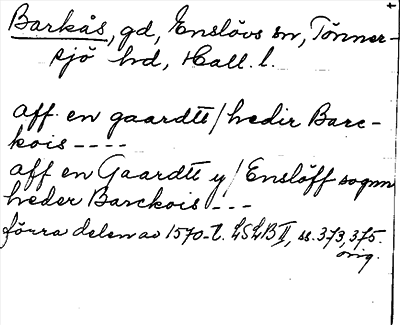 Barkås, gd, Enslövs sn, Tönner-
sjö hd, Hall. l.
aff en gaardtt / hedir Barc-
kois ----
aff en Gaardtt y / Enslöff sognn
heder Barckois ---
förra delen av 1570-t. LSLB II, ss. 373, 375.
orig.